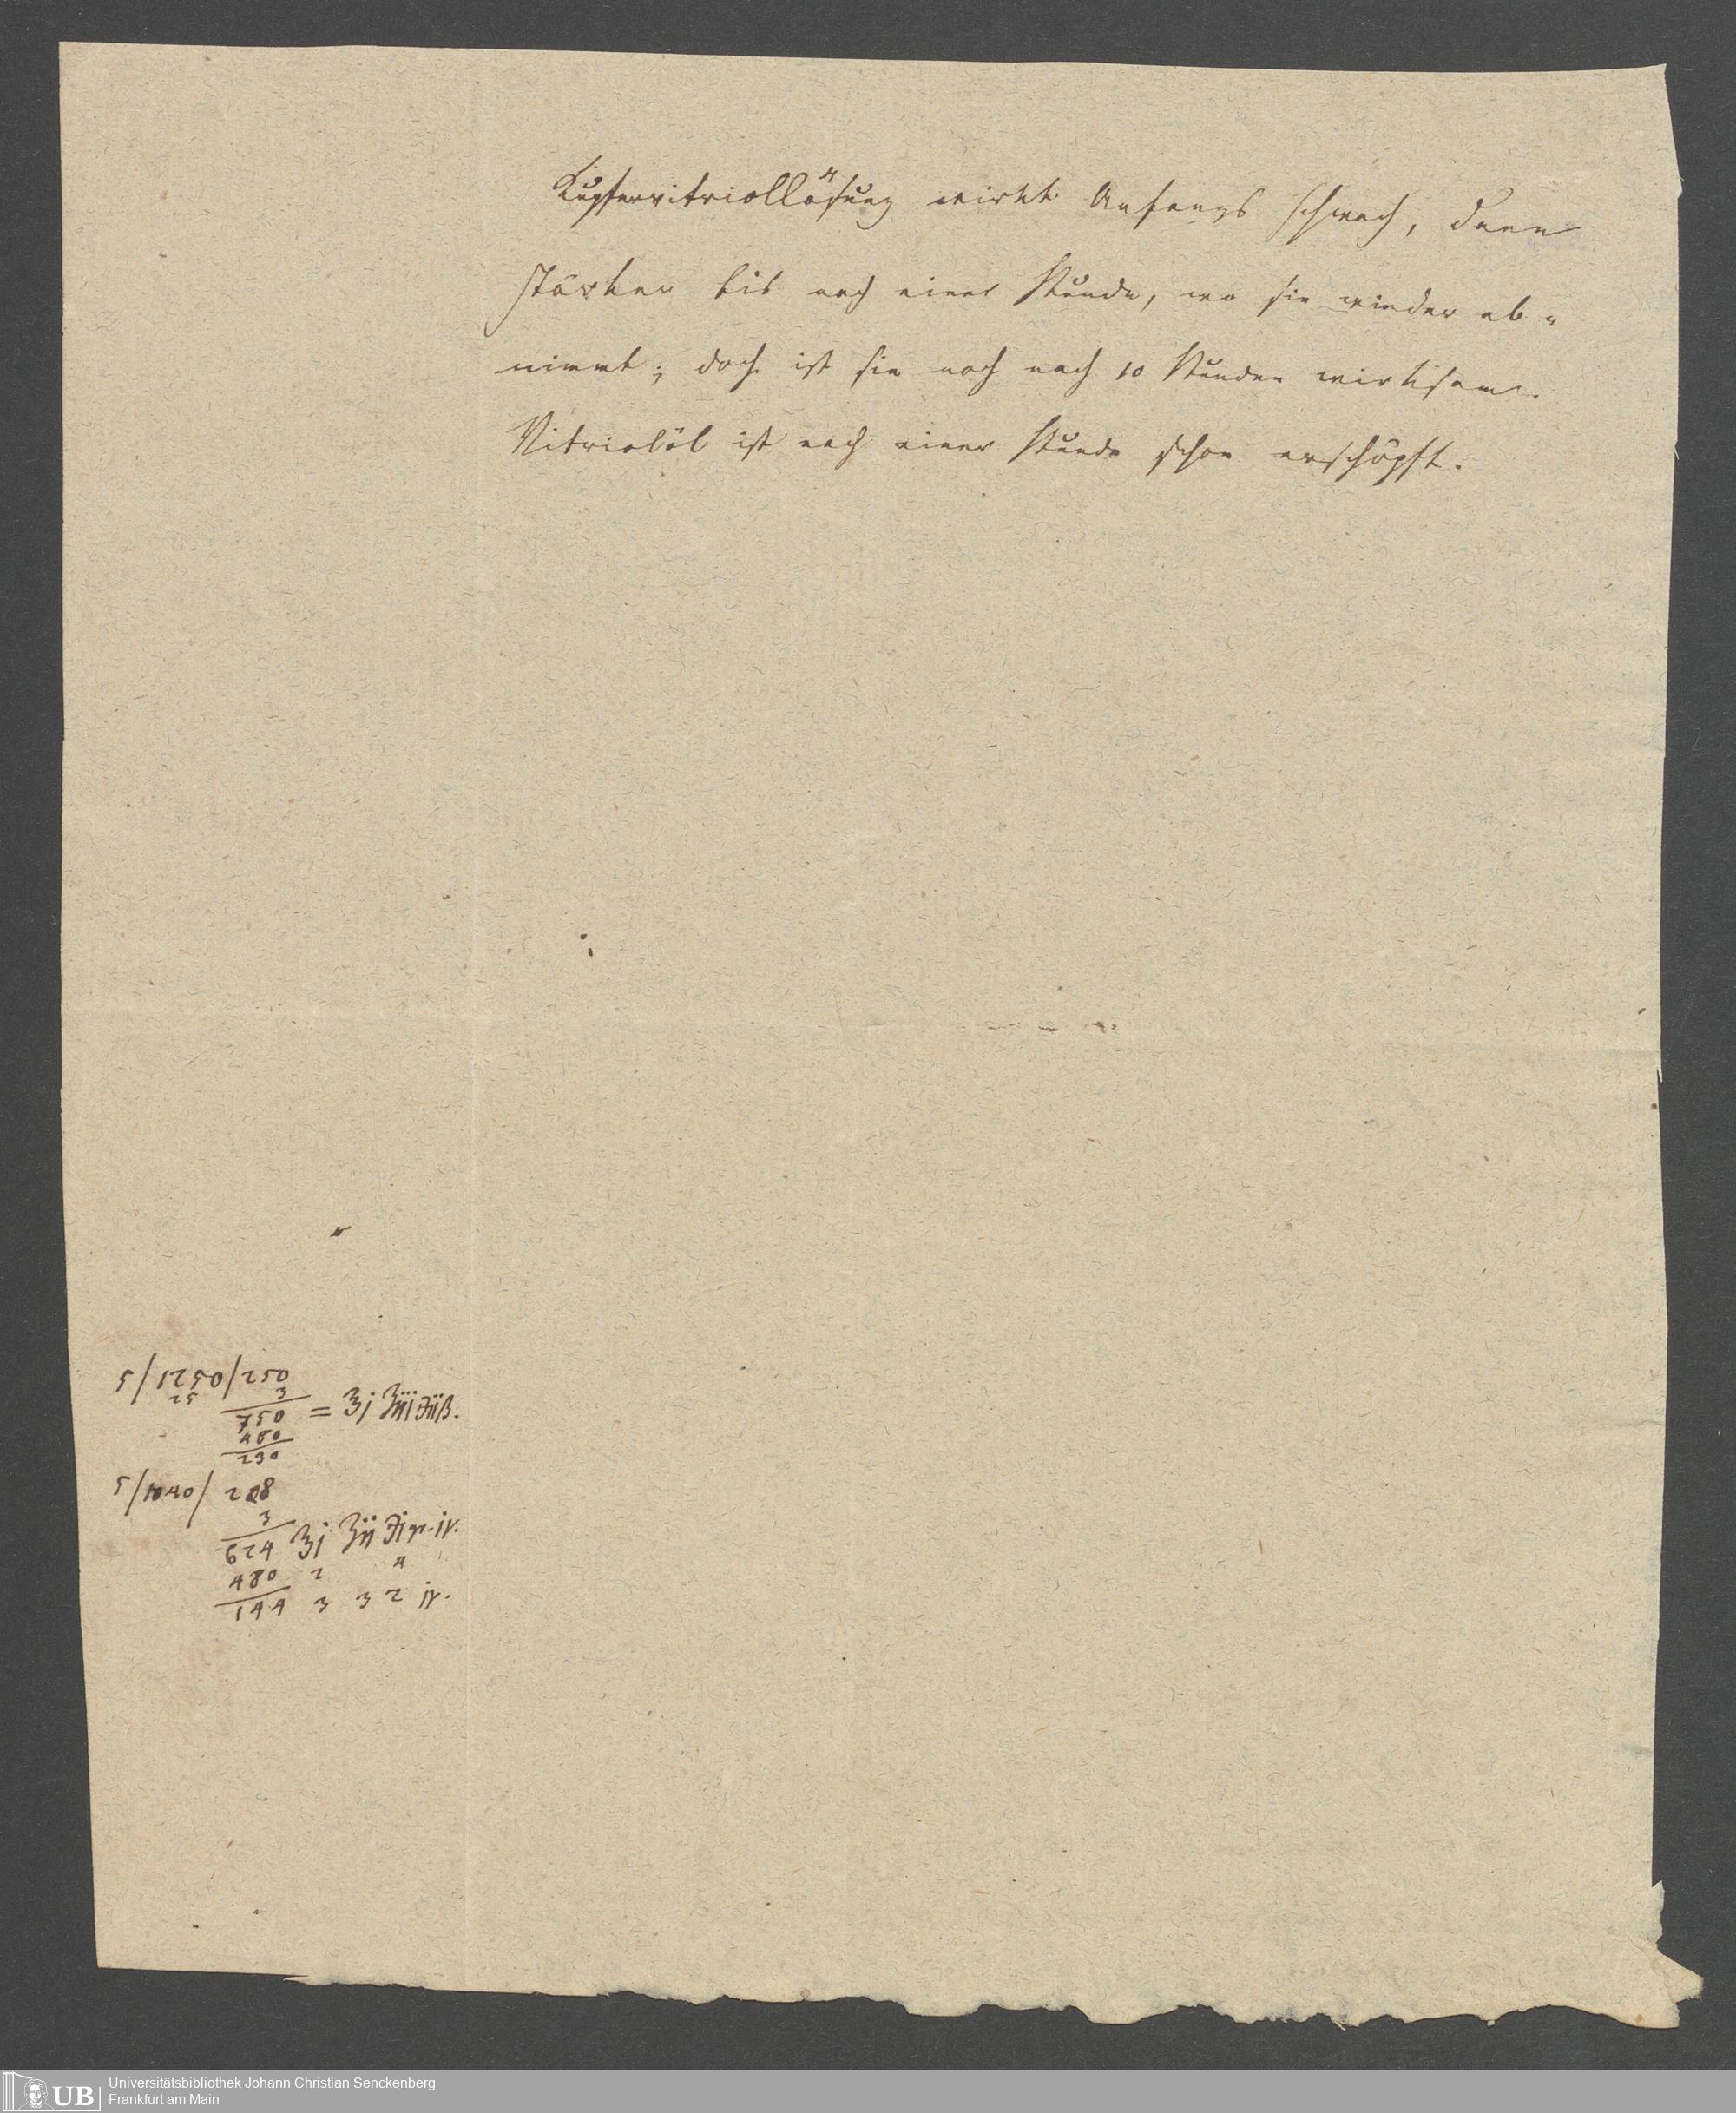 Kupfervitriollösung wirkt Anfangs schwach, dann
stärker bis nach einer Stunde, wo sie wieder ab-
nimmt; doch ist sie noch nach 10 Stunden wirksam.
Vitriolöl ist nach einer Stunde schon erschöpft.
5/1250/250
25 3
750 = ℥j ʒiij ℈iiß.
480
230
5/1040/208
3
624 ℥j ʒij ℈j gr. iv.
480 2 4
144 3 3 2 iv.
UB
Universitätsbibliothek Johann Christian Senckenberg
Frankfurt am Main